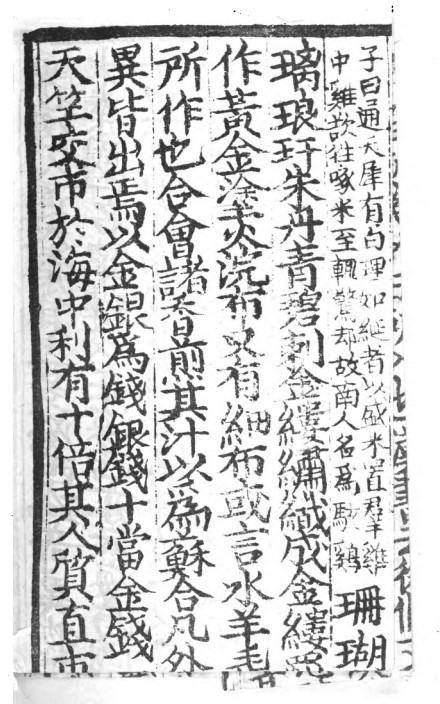 子曰通天犀有白理如綖者以盛米置羣雞
中雞欲往啄米至輒驚却故南人名爲駭鷄
珊瑚
璃琅玕朱丹青碧刺金縷繡織成金縷罽
作黃金塗火浣布又有細布或言水羊毳
所作也合會諸香煎其汁以爲蘇合凡外
異皆出焉以金銀爲錢銀錢十當金錢
天竺交市於海中利有十倍其人質直市